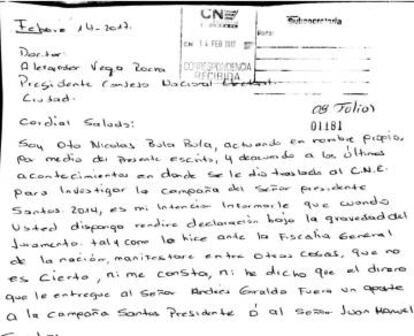 Febrero 14-2017.
CNE
Subsecretaria
Doctor:
CNE 14 FEB 2017
Alexander Vega Rocha
CORRESPONDENCIA
Presidente Consejo Nacional Electoral
RECIBIDA
Ciudad.
08 Folios
Cordial Saludo:
01181
Soy Oto Nicolas Bula Bula, actuando en nombre propio,
por medio del Presente escrito, y deacuerdo a los Últimos
acontecimientos en donde se le dio traslado al C.N.E.
para Investigar la campaña del Señor presidente
Santos. 2014, es mi Intención Informarle que cuando
Usted disponga rendire declaración bajo la gravedad del
Juramento. tal y como lo hice ante la Fiscalia General
de la nación, manifestare entre Otras cosas, que no
es Cierto, ni me consta, ni he dicho que el dinero
que le entregue al Señor Andrés Giraldo Fuera un aporte
a la campaña Santos Presidente Ó al Señor Juan Manuel